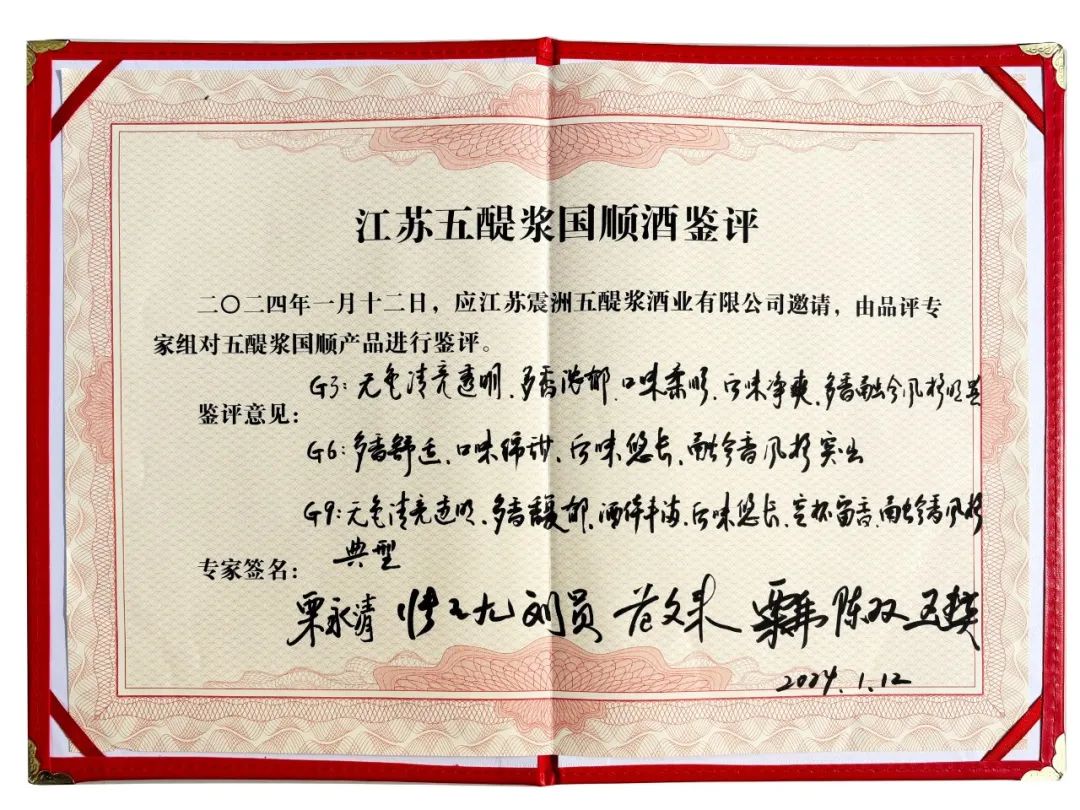 江苏五醍浆国顺酒鉴评
二〇二四年一月十二日，应江苏震洲五醍浆酒业有限公司邀请，由品评专
家组对五醍浆国顺产品进行鉴评。
G3：无色清亮透明、多香浓郁、口味柔顺、后味净爽、多香融合风格明显
鉴评意见：
G6：多香舒适、口味绵甜、后味悠长、融合香风格突出
G9：无色清亮透明、多香馥郁、酒体丰满、后味悠长、空杯留香、融合香风格
典型
专家签名：
栗永清 刘员 范文来 栗伟 陈双
2024.1.12